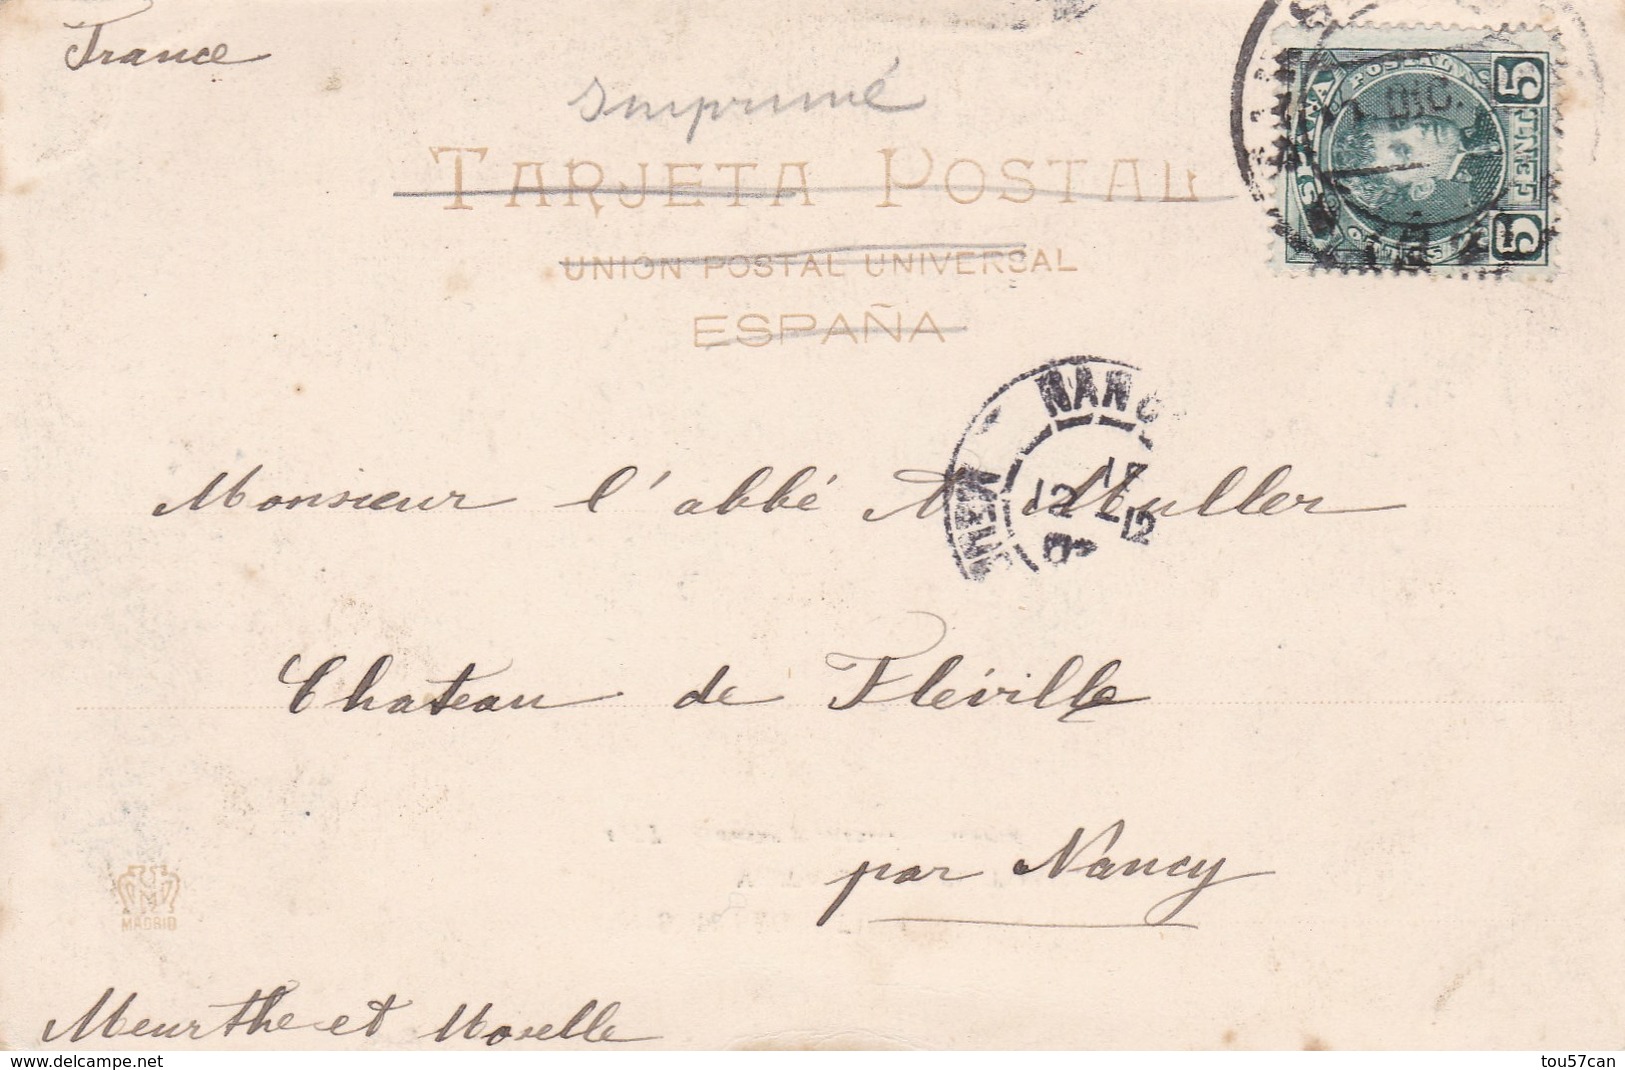 France
Imprimé
TARJETA POSTAL
UNIÓN POSTAL UNIVERSAL
ESPAÑA
5 CENT 5
DIC.
NANC
17
12 12
Monsieur l'abbé A. Muller
Chateau de Fléville
par Nancy
MADRID
Meurthe et Moselle
www.delcampe.net
tou57can